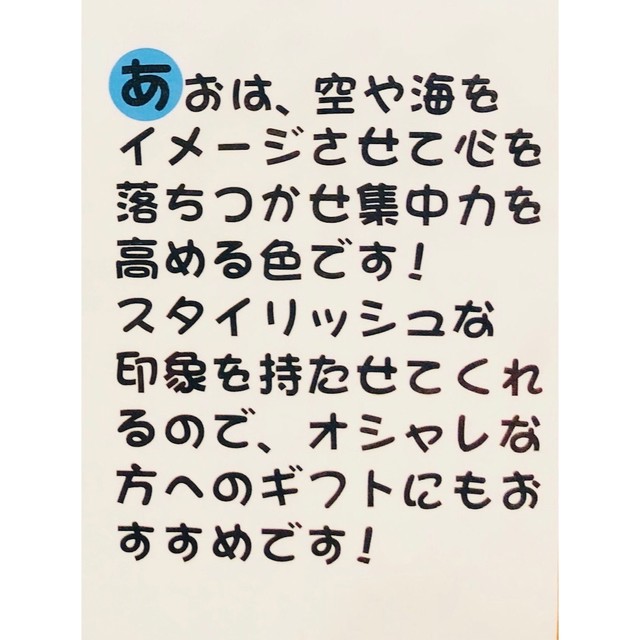 あおは、空や海を
イメージさせて心を
落ちつかせ集中力を
高める色です!
スタイリッシュな
印象を持たせてくれ
るので、オシャレな
方へのギフトにもお
すすめです!